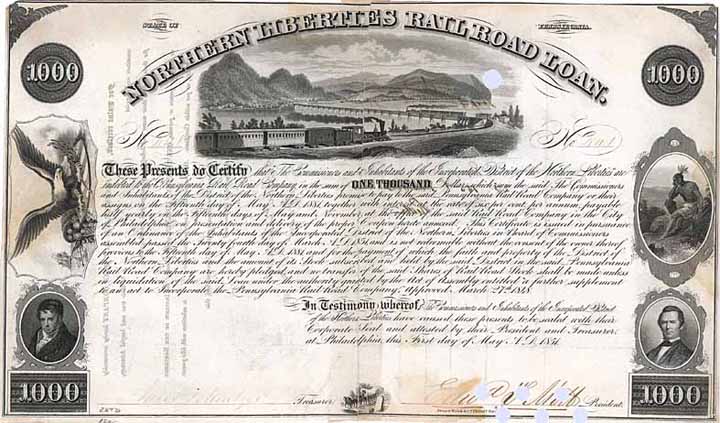 STATE OF PENNSYLVANIA.
NORTHERN LIBERTIES RAIL ROAD LOAN.
1000 1000
No No
These Presents do Certify that The Commissioners and Inhabitants of the Incorporated District of the Northern Liberties are
indebted to the Pennsylvania Rail Road Company in the sum of ONE THOUSAND Dollars, which sum the said The Commissioners
and Inhabitants of the District of the Northern Liberties promise to pay to the Pennsylvania Rail Road Company or their
assigns on the Fifteenth day of May A.D. 1881, together with interest at the rate of six per cent per annum, payable
half yearly on the fifteenth days of May and November, at the of the said Rail Road Company in the City
of Philadelphia, on presentation and delivery of the proper Coupon hereto annexed. This Certificate is issued in pursuance
of an Ordinance of the Commissioners of the Incorporated District of the Northern Liberties in Board of Commissioners
assembled passed the Twenty fourth day of March A.D. 1851, and is not redeemable without the consent of the owner thereof
previous to the Fifteenth day of May A.D. 1881, and for the payment of which the faith and property of the District of
the Northern Liberties and the amount of its Stock subscribed and held by the said District in the said Pennsylvania
Rail Road Company are hereby pledged, and no transfer of the said Shares of Rail Road Stock shall be made unless
in liquidation of the said Loan under the authority granted by the Act of Assembly entitled "a further supplement
to an act to Incorporate the Pennsylvania Rail Road Company," Approved March 27th 1848.
In Testimony whereof, The Commissioners and Inhabitants of the Incorporated District
of the Northern Liberties have caused these presents to be sealed with their
Corporate Seal and attested by their President and Treasurer,
at Philadelphia, this First day of May A.D. 1851.
Treasurer. President.
1000 1000